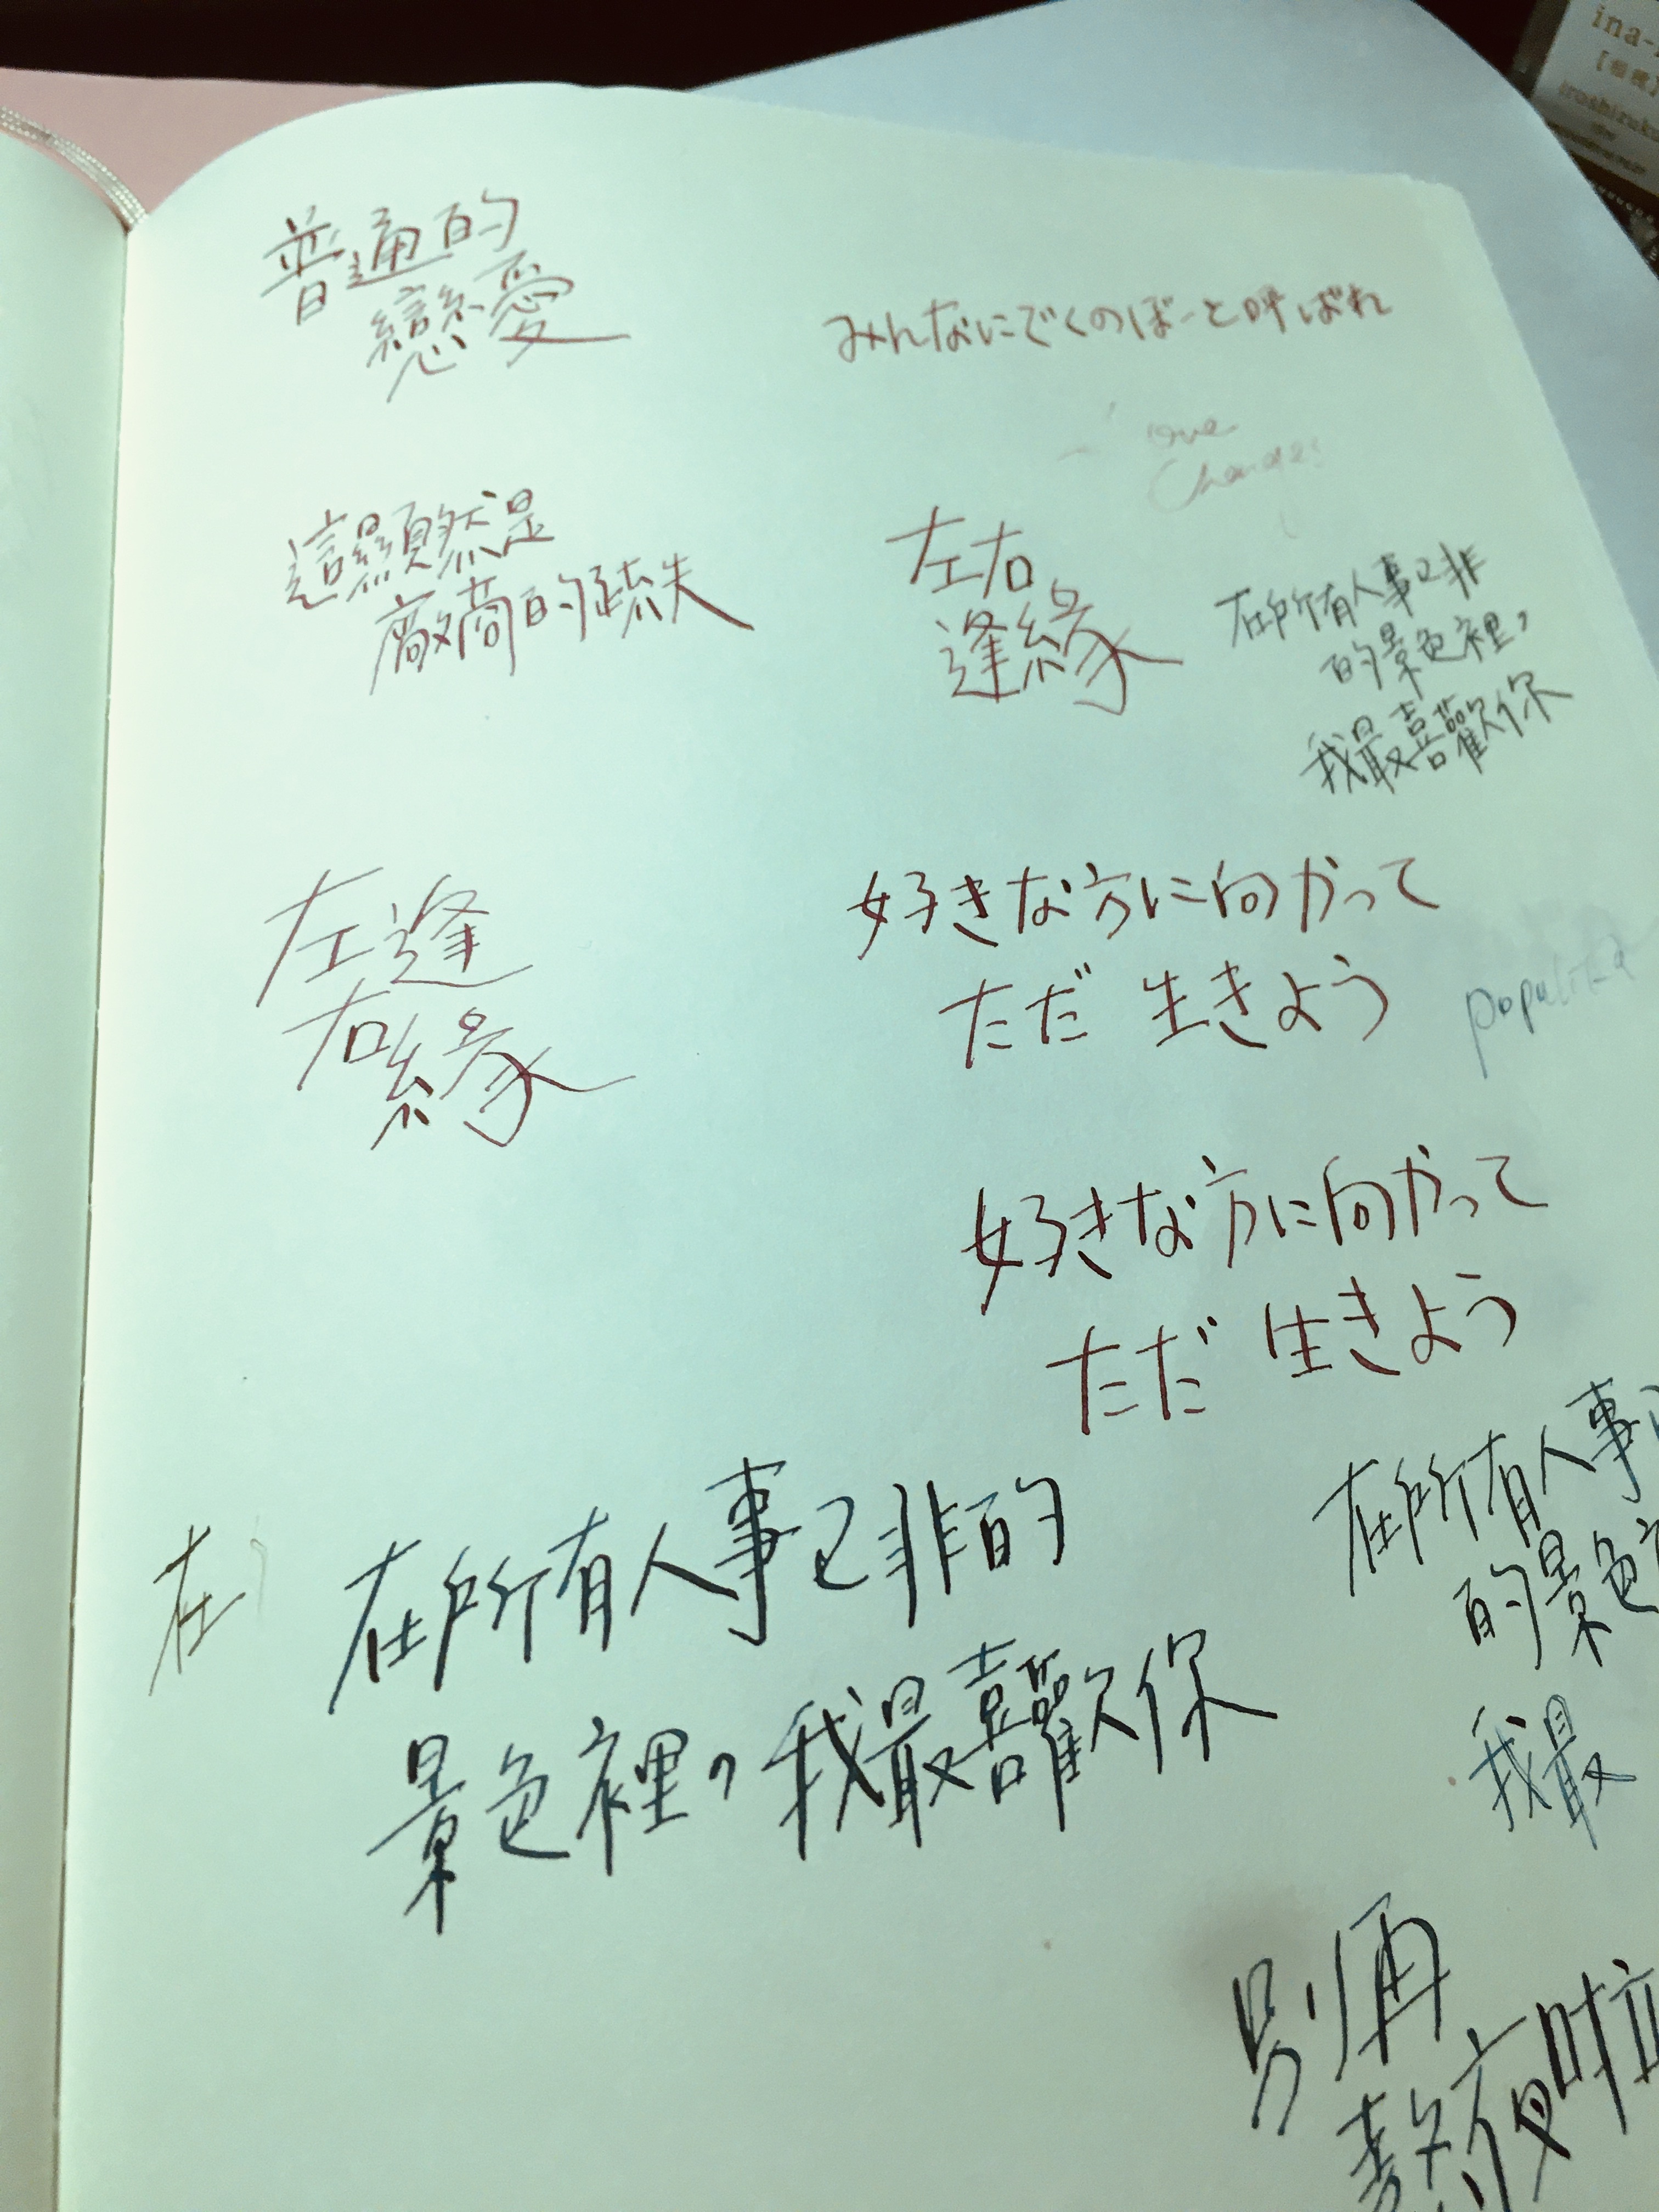 ina-
iroshizuku
普通的
戀愛
みんなにでくのぼーと呼ばれ
Love
Changes
這顯然是
廠商的疏失
左右
逢緣
在所有人事已非
的景色裡，
我最喜歡你
左逢
右緣
好きな方に向かって
ただ 生きよう
好きな方に向かって
ただ 生きよう
在
在所有人事已非的
景色裡，我最喜歡你
在所有人事
的景色
我最
別再
熬夜啦